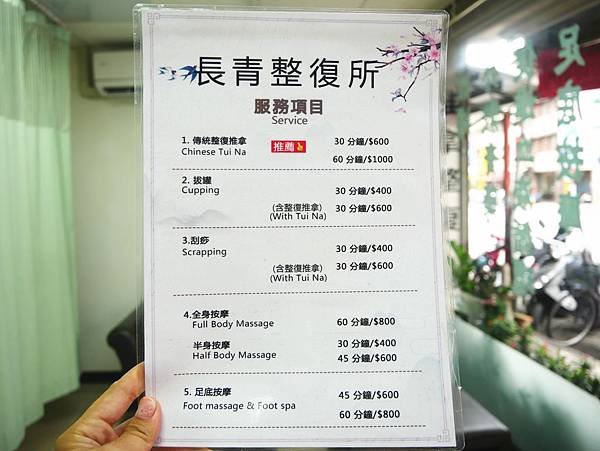 長青整復所
服務項目
Service
1. 傳統整復推拿 推薦 30 分鐘/$600
Chinese Tui Na 60 分鐘/$1000
2. 拔罐
Cupping 30 分鐘/$400
(含整復推拿) 30 分鐘/$600
(With Tui Na)
3.刮痧 30 分鐘/$400
Scrapping
(含整復推拿) 30 分鐘/$600
(With Tui Na)
4.全身按摩
Full Body Massage 60 分鐘/$800
半身按摩 30 分鐘/$400
Half Body Massage 45 分鐘/$600
5. 足底按摩 45 分鐘/$600
Foot massage & Foot spa 60 分鐘/$800